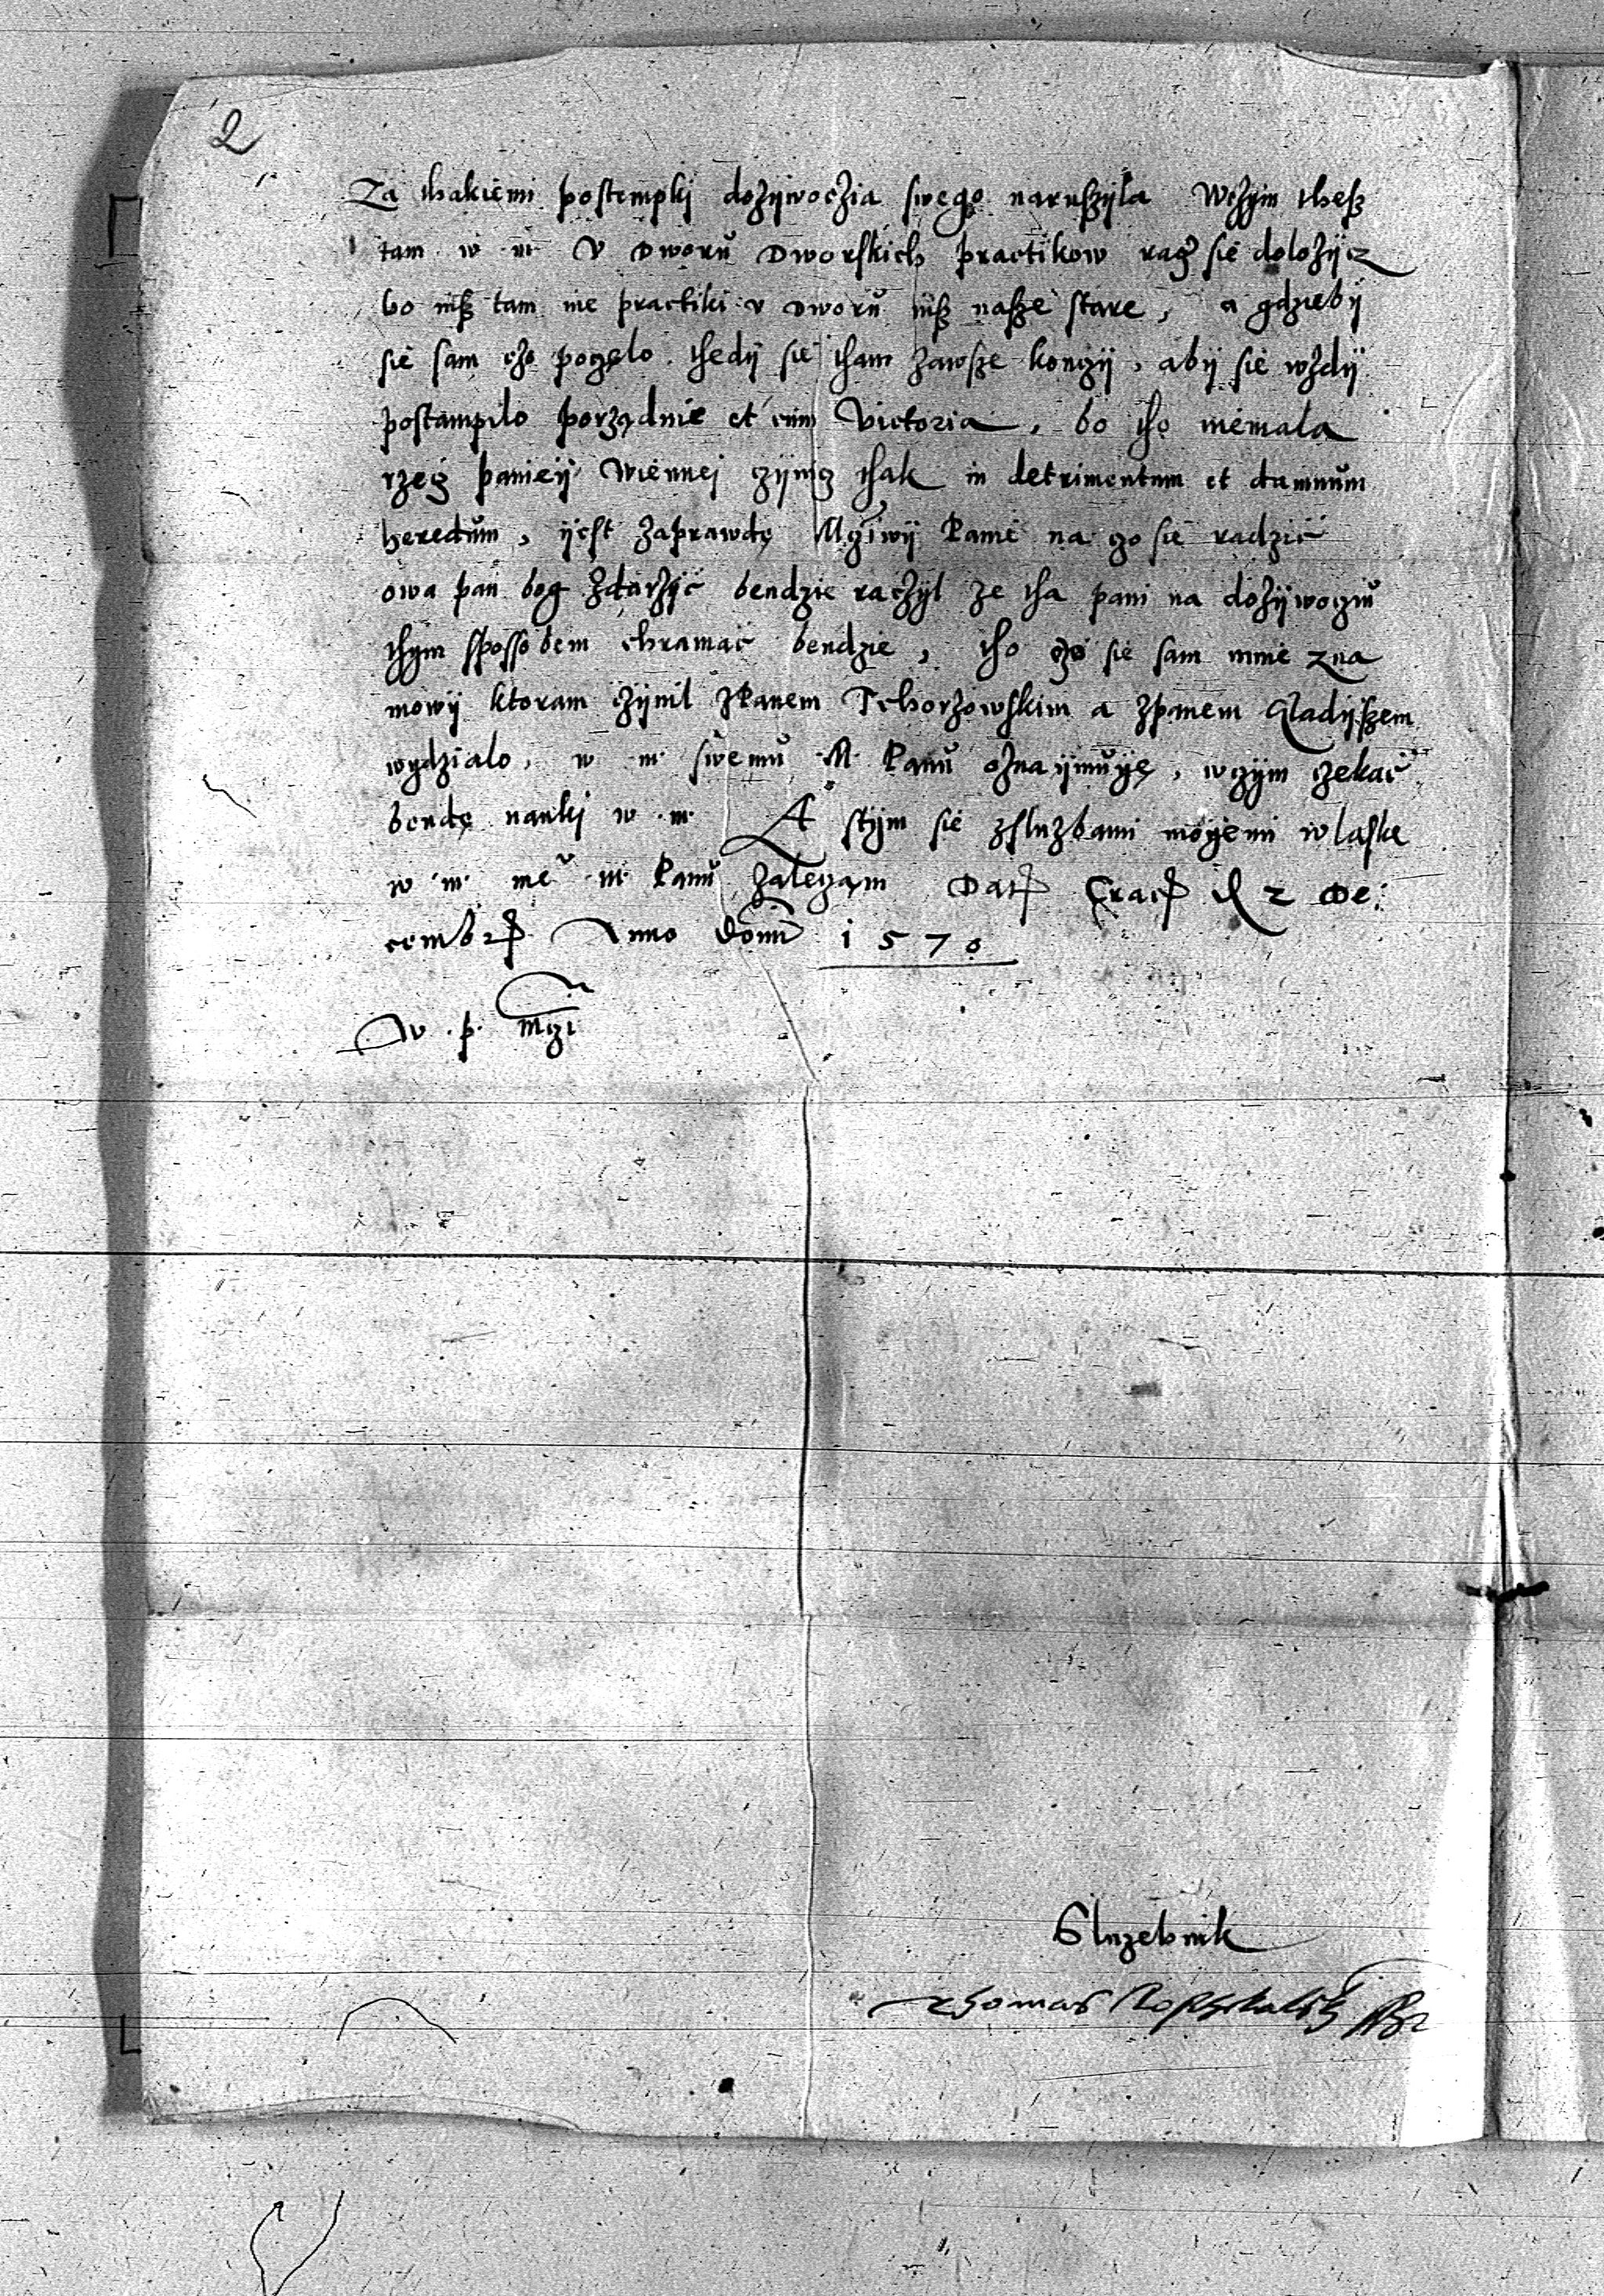 2
Za thakiemi postempkj dozijwoczia swego naruszijla Wczijm thesz
tam w m v dworu dworskich practikow racz sie dolozijcz
bo isz tam nie practiki v dworu isz nasze stare, a gdziebij
sie sam czo poczęlo thedij sie tham zawsze konczij, abij sie wzdij
postampilo porządnie et cum Victoria, bo tho niemala
rzecz panieij Wiennej czijnicz thak in detrimentum et damnum
heredum, ijest zaprawdę Mczıwij Panie na czo sie radzić
owa pan bog zdarzijć bendzie raczijl ze tha pani na dozijwocziu
thijm spossobem chramać bendzie, tho czo sie sam mnie zna
mowij ktoram czijnil zPanem Tchorzowskim a zpanem Gladijszem
wydzialo, w m swemu M Panu oznaijmuyę, wczijm czekać
bendę naukj w m A stijm sie zsluzbami moyemi w laske
w m me m Panu zaleczam Dat Crac 2 De:
cembr Anno Domi 1570
W . p. Mczi
Sluzebnik
Thomas